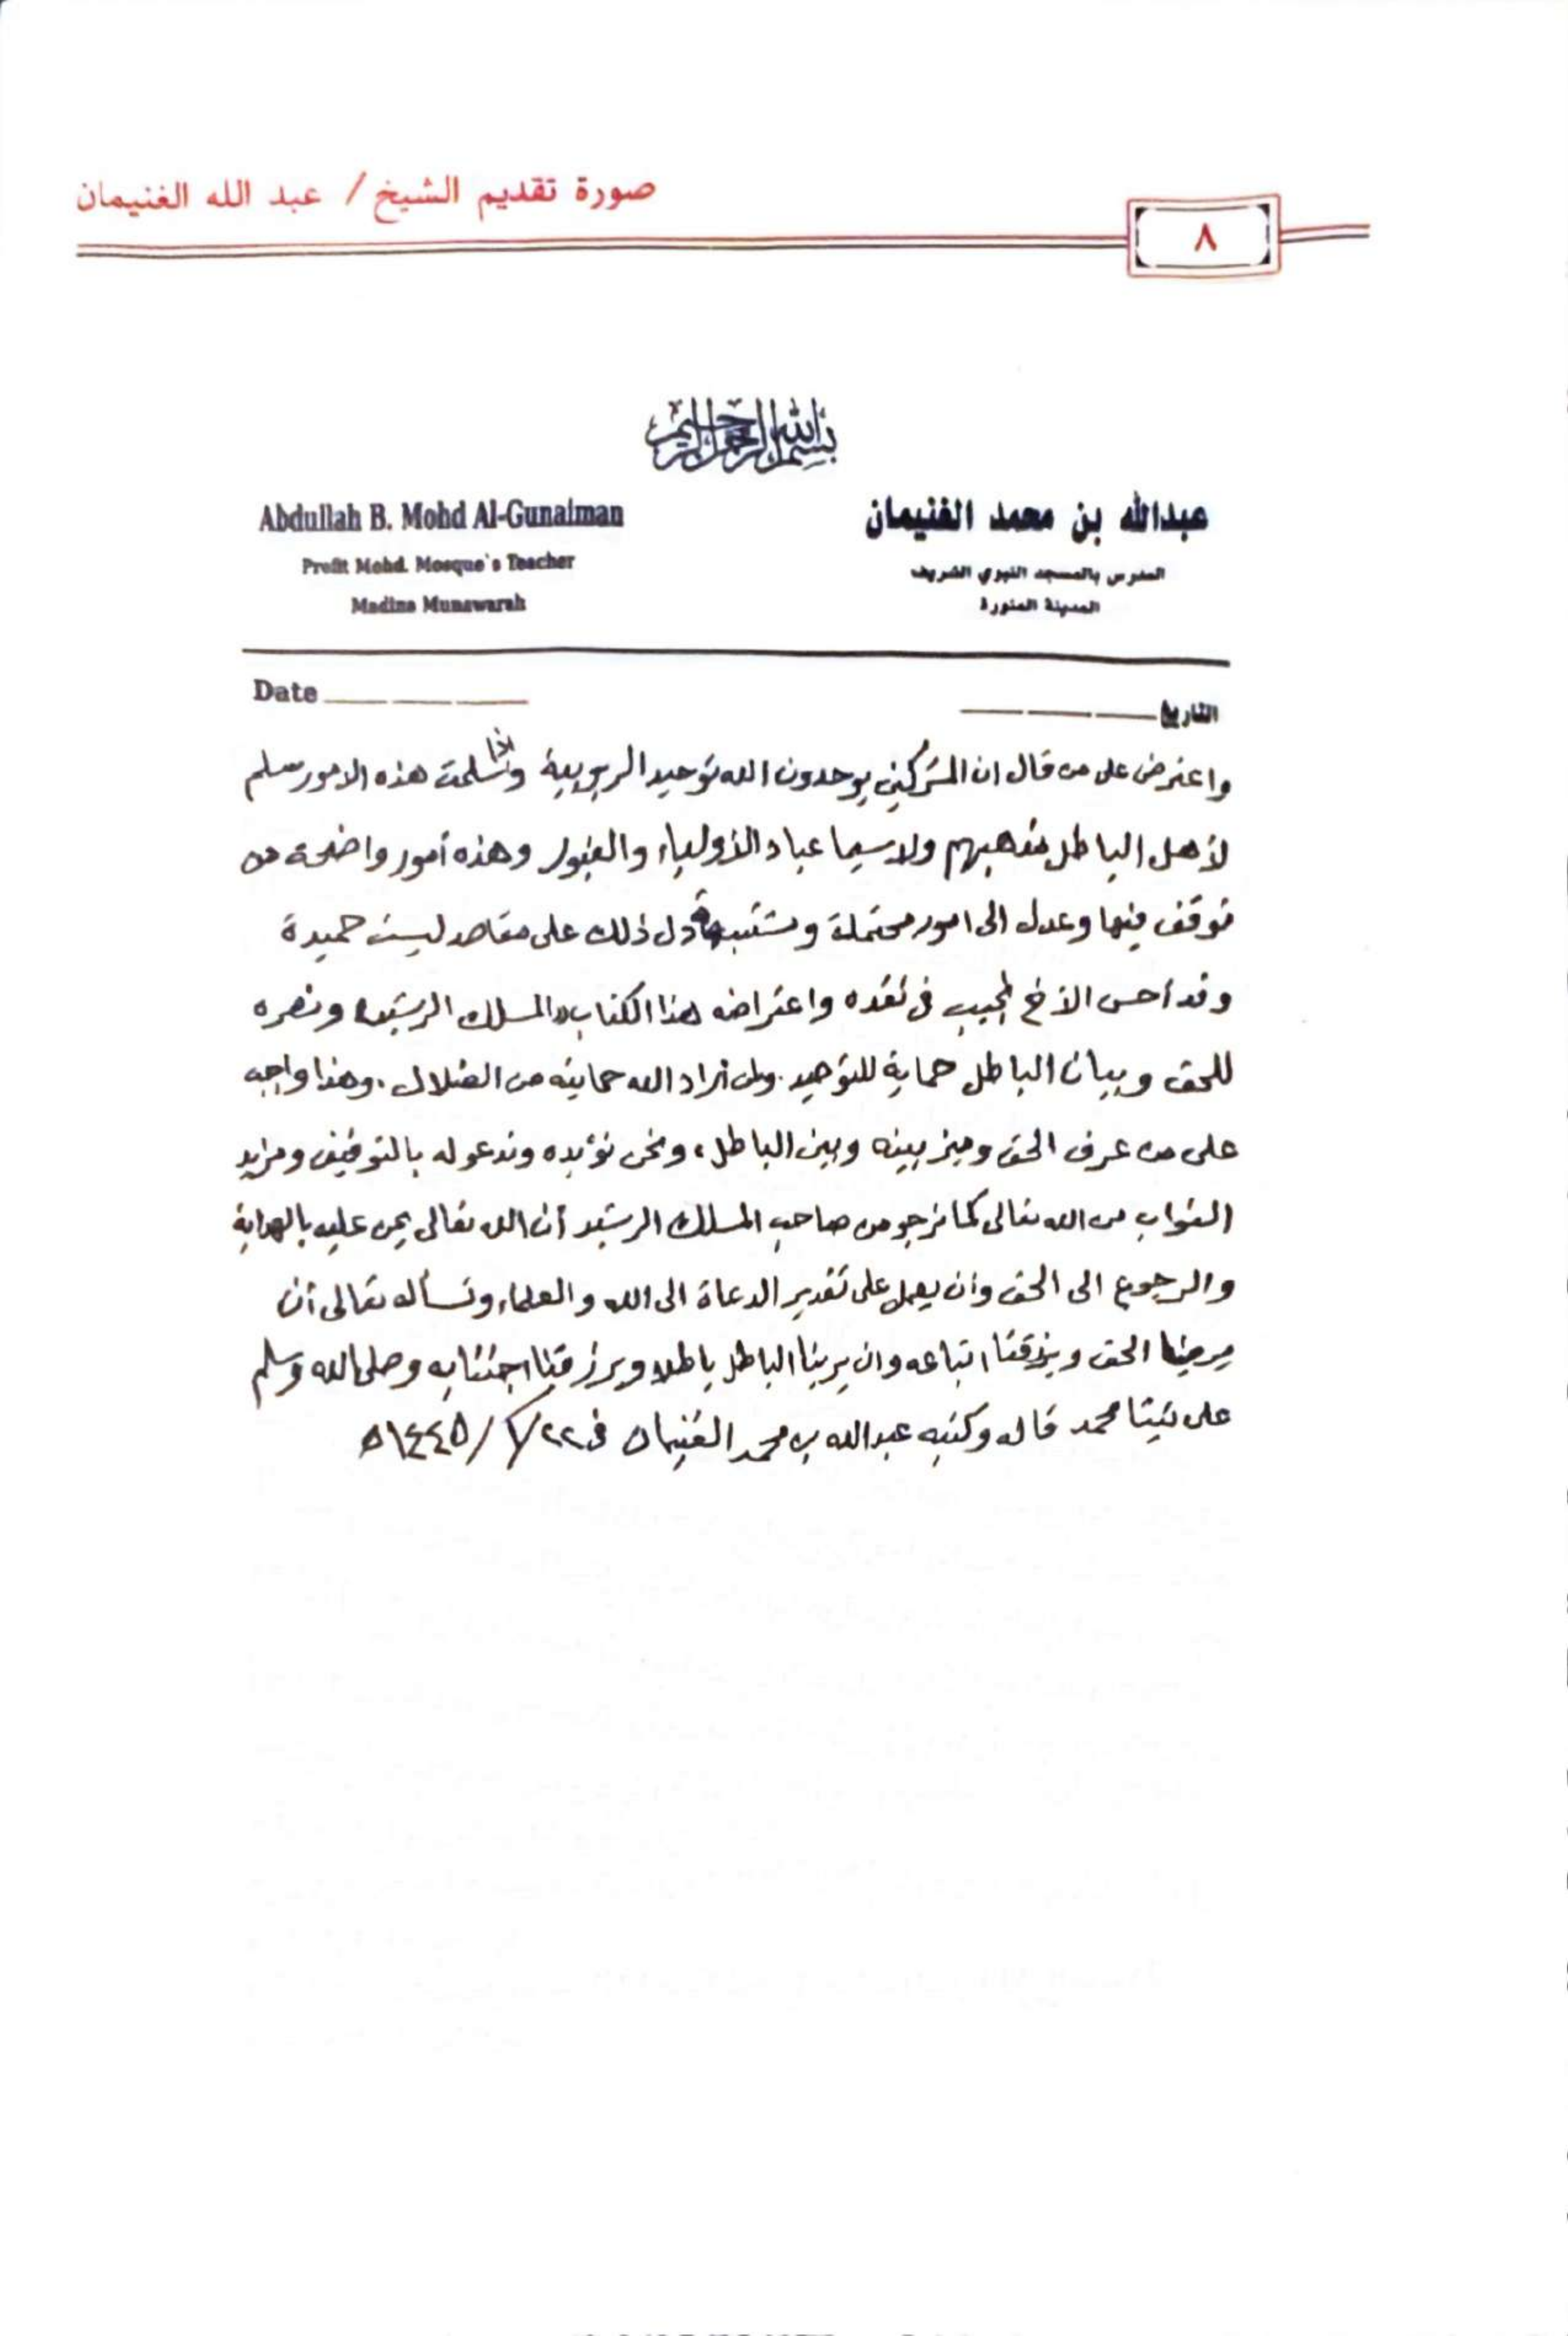 صورة تقديم الشيخ / عبد الله الغنيمان
٨
بسم الله الرحمن الرحيم
عبدالله بن محمد الغنيمان
المدرس بالمسجد النبوي الشريف
المدينة المنورة
Abdullah B. Mohd Al-Gunaiman
Profit Mohd. Mosque's Teacher
Madina Munawarah
التاريخ
Date
واعترض على من قال ان المشركين يوحدون الله توحيد الربوبية واذا سلمت هذه الامور سلم
لأهل الباطل مذهبهم ولا سيما عباد الأولياء والقبور وهذه أمور واضحة من
توقف فيها وعدل الى امور محتملة ومشتبهة دل ذلك على مقاصد ليست حميدة
وقد أحسن الأخ في نقده واعتراضه هذا الكتاب «المسلك الرشيد» ونصره
للحق وبيان الباطل حماية للتوحيد. ولمن أراد الله حمايته من الضلال. وهذا واجب
على من عرف الحق وميز بينه وبين الباطل، ونحن نؤيده وندعو له بالتوفيق ومزيد
الثواب من الله تعالى كما نرجو من صاحب المسلك الرشيد أن الله تعالى يمن عليه بالهداية
والرجوع الى الحق وأن يعمل على تقدير الدعاة الى الله والعلماء ونسأله تعالى أن
يرينا الحق ويرزقنا اتباعه وان يرينا الباطل باطلا ويرزقنا اجتنابه وصلى الله وسلم
على نبينا محمد قاله وكتبه عبدالله بن محمد الغنيمان في ٢٢/ /١٤٤٥ه